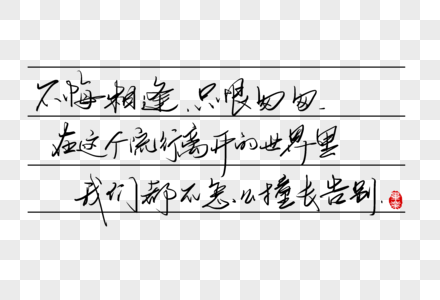 不悔相逢.只恨匆匆.
在这个流行离开的世界里
我们都不怎么擅长告别.